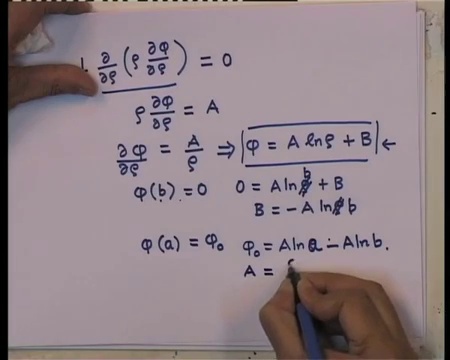 1. ∂/∂ρ (ρ ∂φ/∂ρ) = 0
ρ ∂φ/∂ρ = A
∂φ/∂ρ = A/ρ ⇒ φ = A ln ρ + B ←
φ(b) = 0 0 = A ln b + B
B = - A ln b
φ(a) = φ₀ φ₀ = A ln a - A ln b.
A =